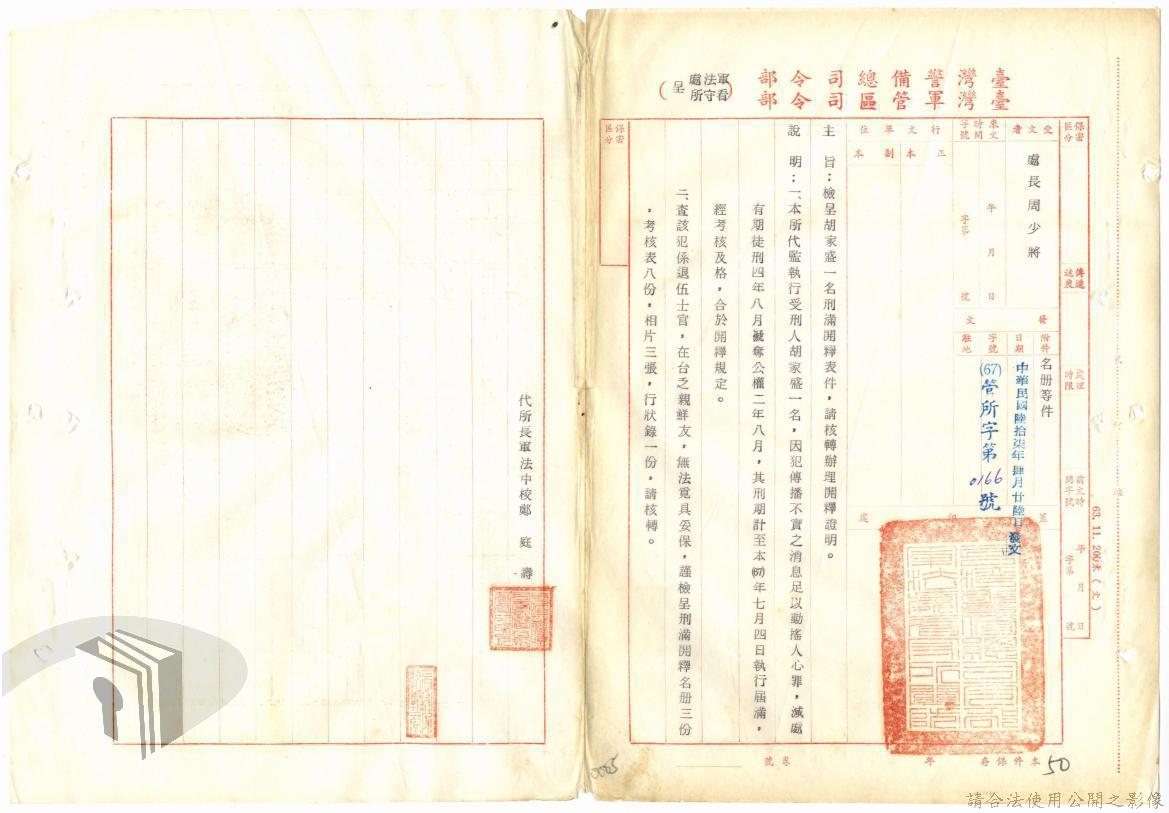 臺灣警備總司令部
臺灣軍管區司令部
軍法處
看守所
(呈)
保密區分
受文者
處長周少將
來文時間字號
年 月 日
字第 號
行文單位
正本
副本
保密區分
傳遞速度
處理時限
前文時間字號
年 月 日
字第 號
發文
附件
名册等件
日期
中華民國陸拾柒年肆月廿陸日發文
字號
(67)管所字第0166號
駐地
蓋印處
63.11.200本(文)
主旨:檢呈胡家盛一名刑滿開釋表件,請核轉辦理開釋證明。
說明:一、本所代監執行受刑人胡家盛一名,因犯傳播不實之消息足以動搖人心罪,減處
有期徒刑四年八月褫奪公權二年八月,其刑期計至本(67)年七月四日執行屆滿,
經考核及格,合於開釋規定。
二、查該犯係退伍士官,在台乏親鮮友,無法覓具妥保,謹檢呈刑滿開釋名册三份
,考核表八份,相片三張,行狀錄一份,請核轉。
代所長軍法中校鄭庭壽
本件保存 年
卷號
50
0005
請合法使用公開之影像